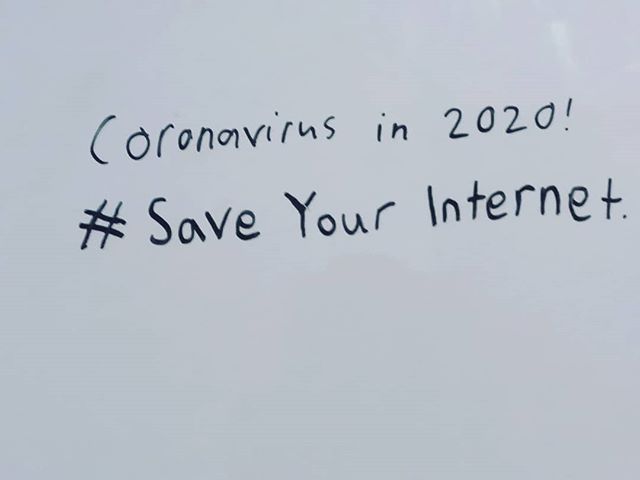 Coronavirus in 2020!
# Save Your Internet.